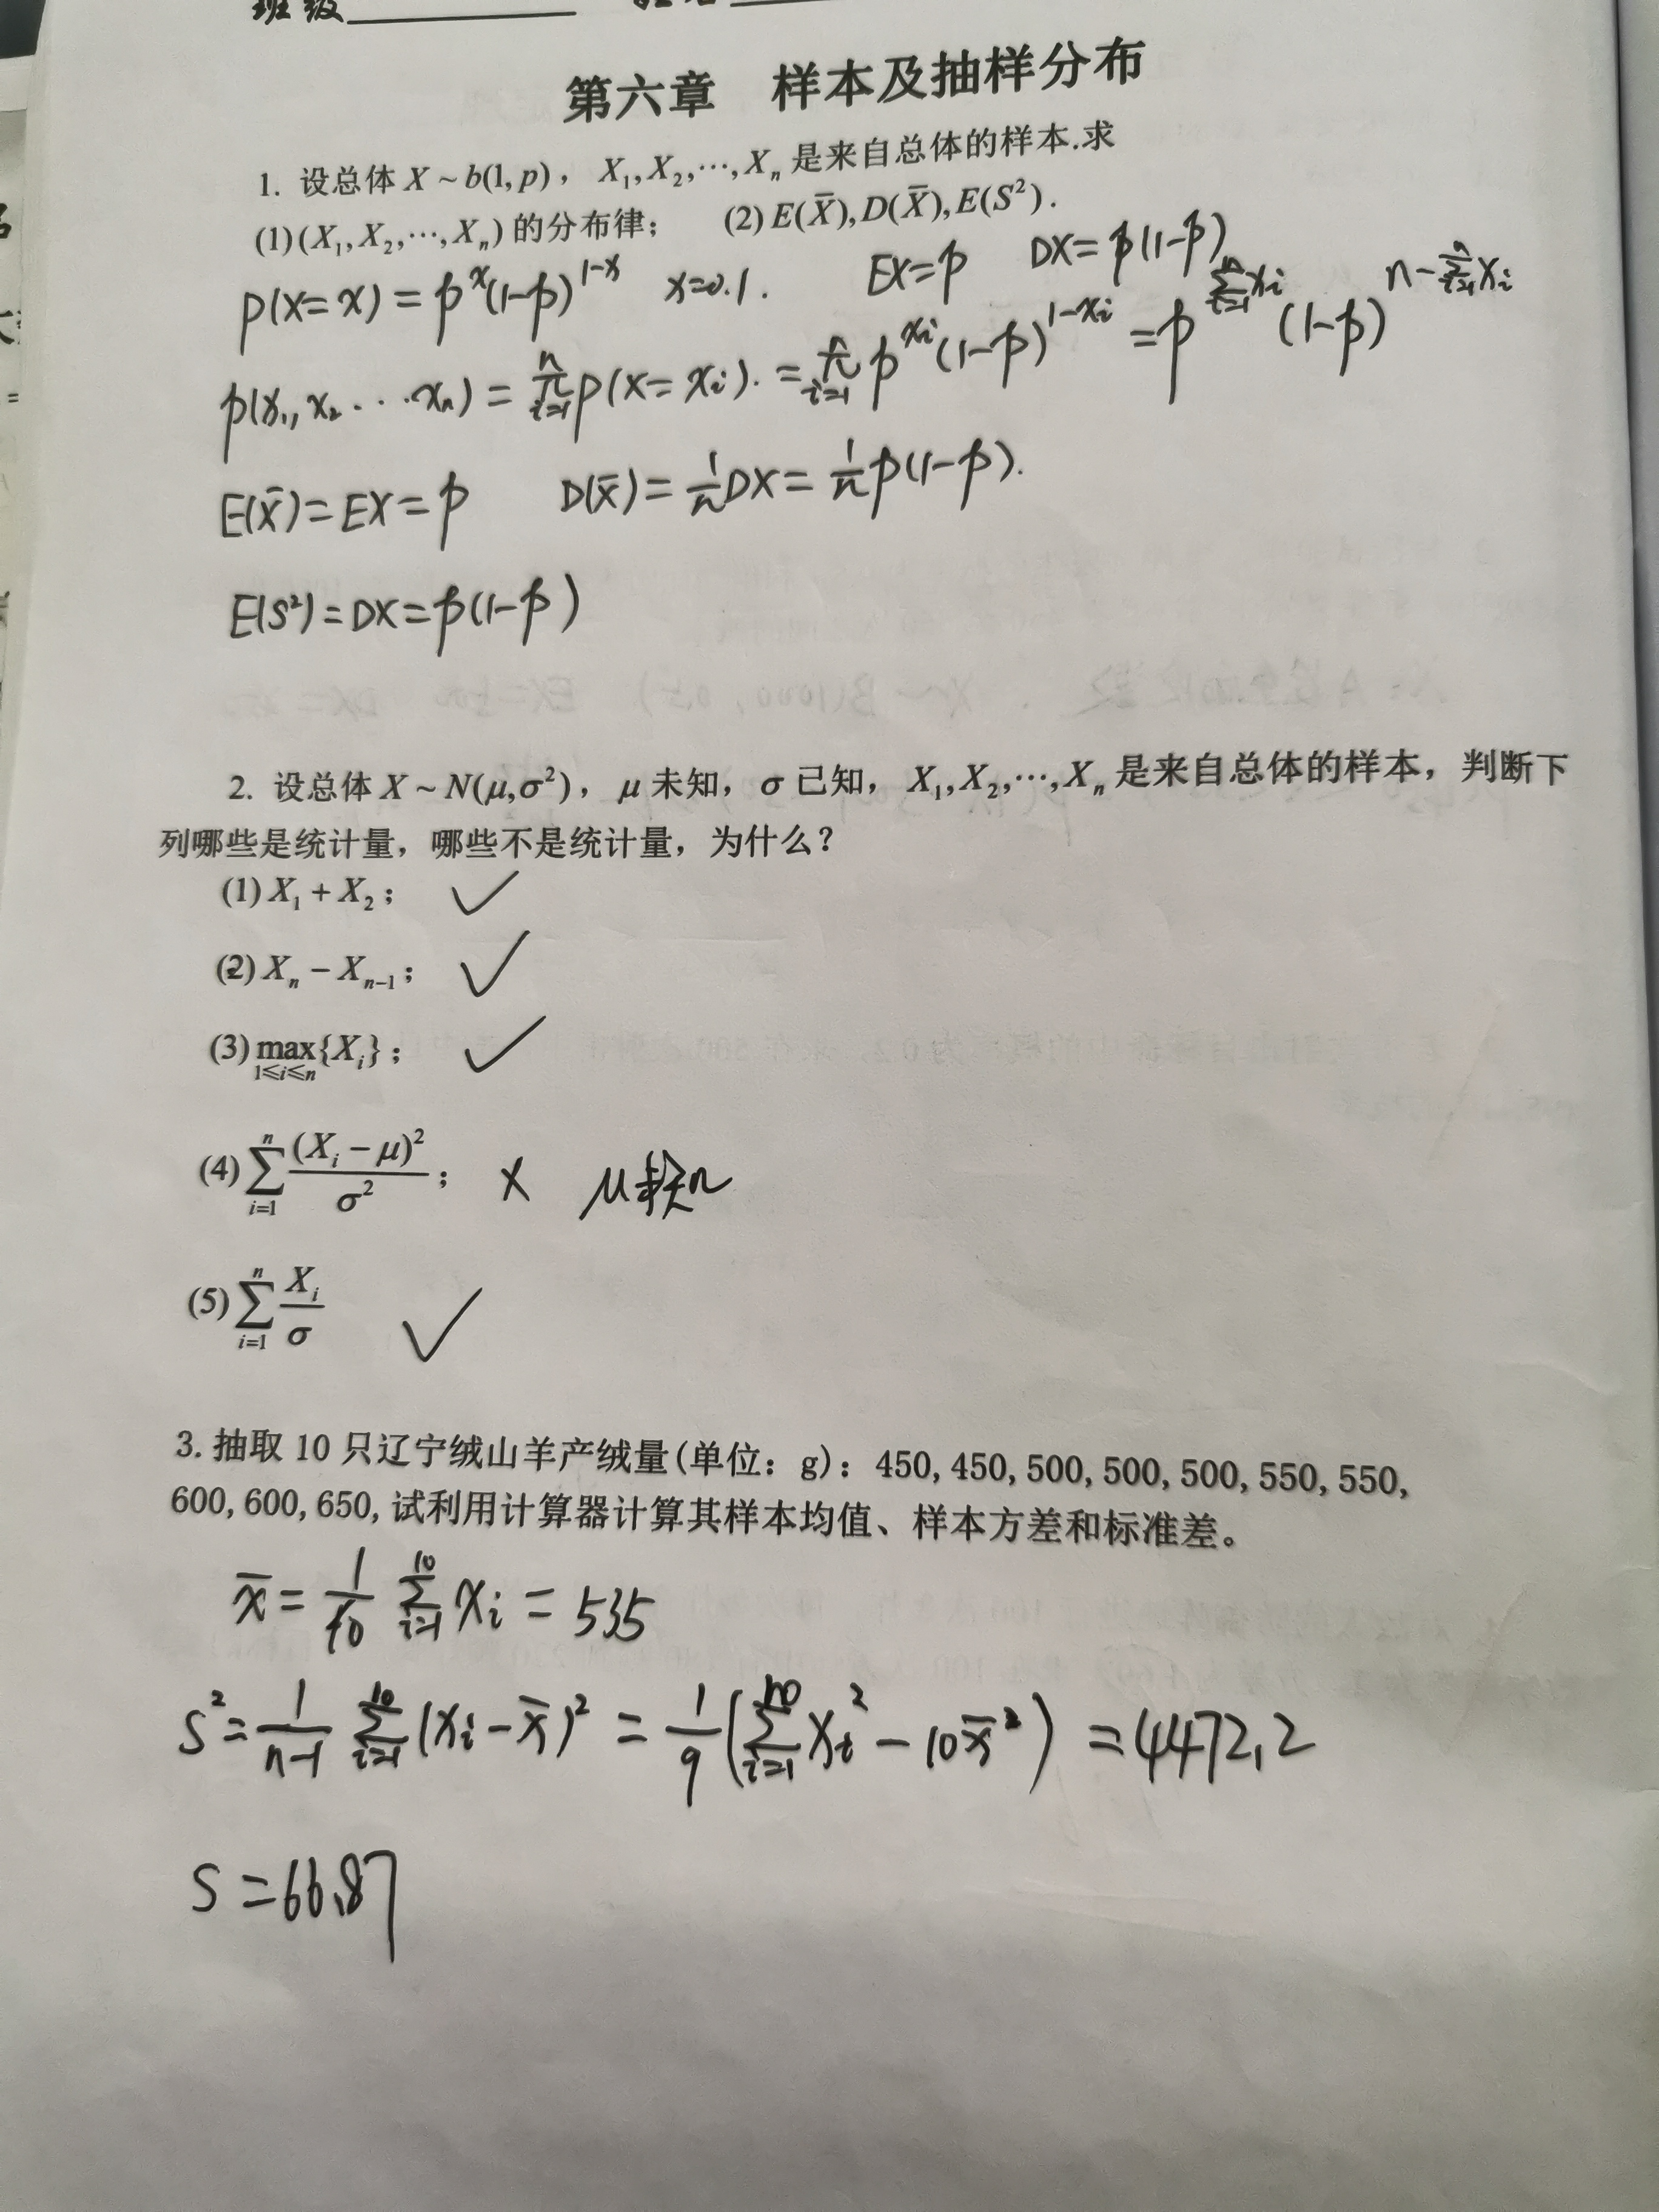 班级
第六章 样本及抽样分布
1. 设总体 X ~ b(1, p), X₁, X₂, ⋯, Xₙ 是来自总体的样本.求
(1) (X₁, X₂, ⋯, Xₙ) 的分布律; (2) E(X̄), D(X̄), E(S²).
EX=p DX=p(1-p)
p(X=x) = p^x(1-p)^{1-x} x=0.1.
p(x₁, x₂ ⋯ xₙ) = ∏_{i=1}^{n} p(X=xᵢ). = ∏_{i=1}^{n} p^{xᵢ}(1-p)^{1-xᵢ} = p^{∑_{i=1}^{n} xᵢ} (1-p)^{n-∑_{i=1}^{n} xᵢ}
E(x̄)=EX=p D(x̄)=1/n DX=1/n p(1-p).
E(S²)=DX=p(1-p)
2. 设总体 X ~ N(μ,σ²), μ 未知, σ 已知, X₁, X₂, ⋯, Xₙ 是来自总体的样本, 判断下
列哪些是统计量, 哪些不是统计量, 为什么?
(1) X₁ + X₂; ✓
(2) Xₙ − Xₙ₋₁; ✓
(3) max_{1≤i≤n}{Xᵢ}; ✓
(4) ∑_{i=1}^{n} (Xᵢ − μ)²/σ²; × μ
(5) ∑_{i=1}^{n} Xᵢ/σ ✓
3. 抽取 10 只辽宁绒山羊产绒量(单位: g): 450, 450, 500, 500, 500, 550, 550,
600, 600, 650, 试利用计算器计算其样本均值、样本方差和标准差。
x̄ = 1/10 ∑_{i=1}^{10} xᵢ = 535
S² = 1/(n-1) ∑_{i=1}^{10} (xᵢ - x̄)² = 1/9 (∑_{i=1}^{10} xᵢ² - 10x̄²) = 4472.2
S = 66.87